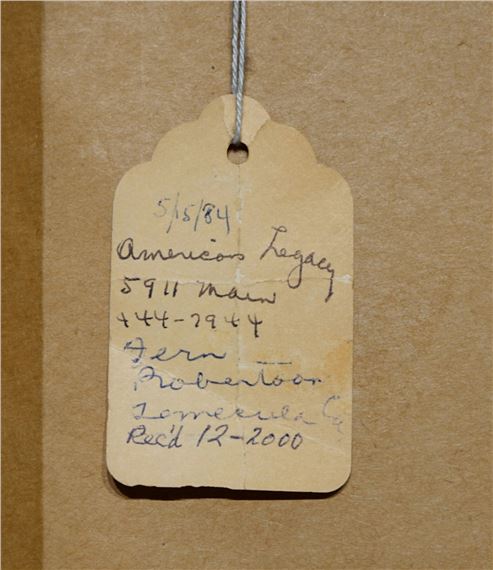 5/15/84
American Legacy
5911 Main
444-7944
Fern
Robertson
Temecula Ca
Rec'd 12-2000